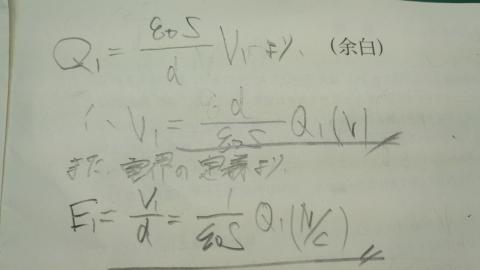 Q₁ = ε₀S/d V₁ より、 (余白)
∴ V₁ = d/ε₀S Q₁ (V)
また、電界の定義より、
E₁ = V₁/d = 1/ε₀S Q₁ (N/C)